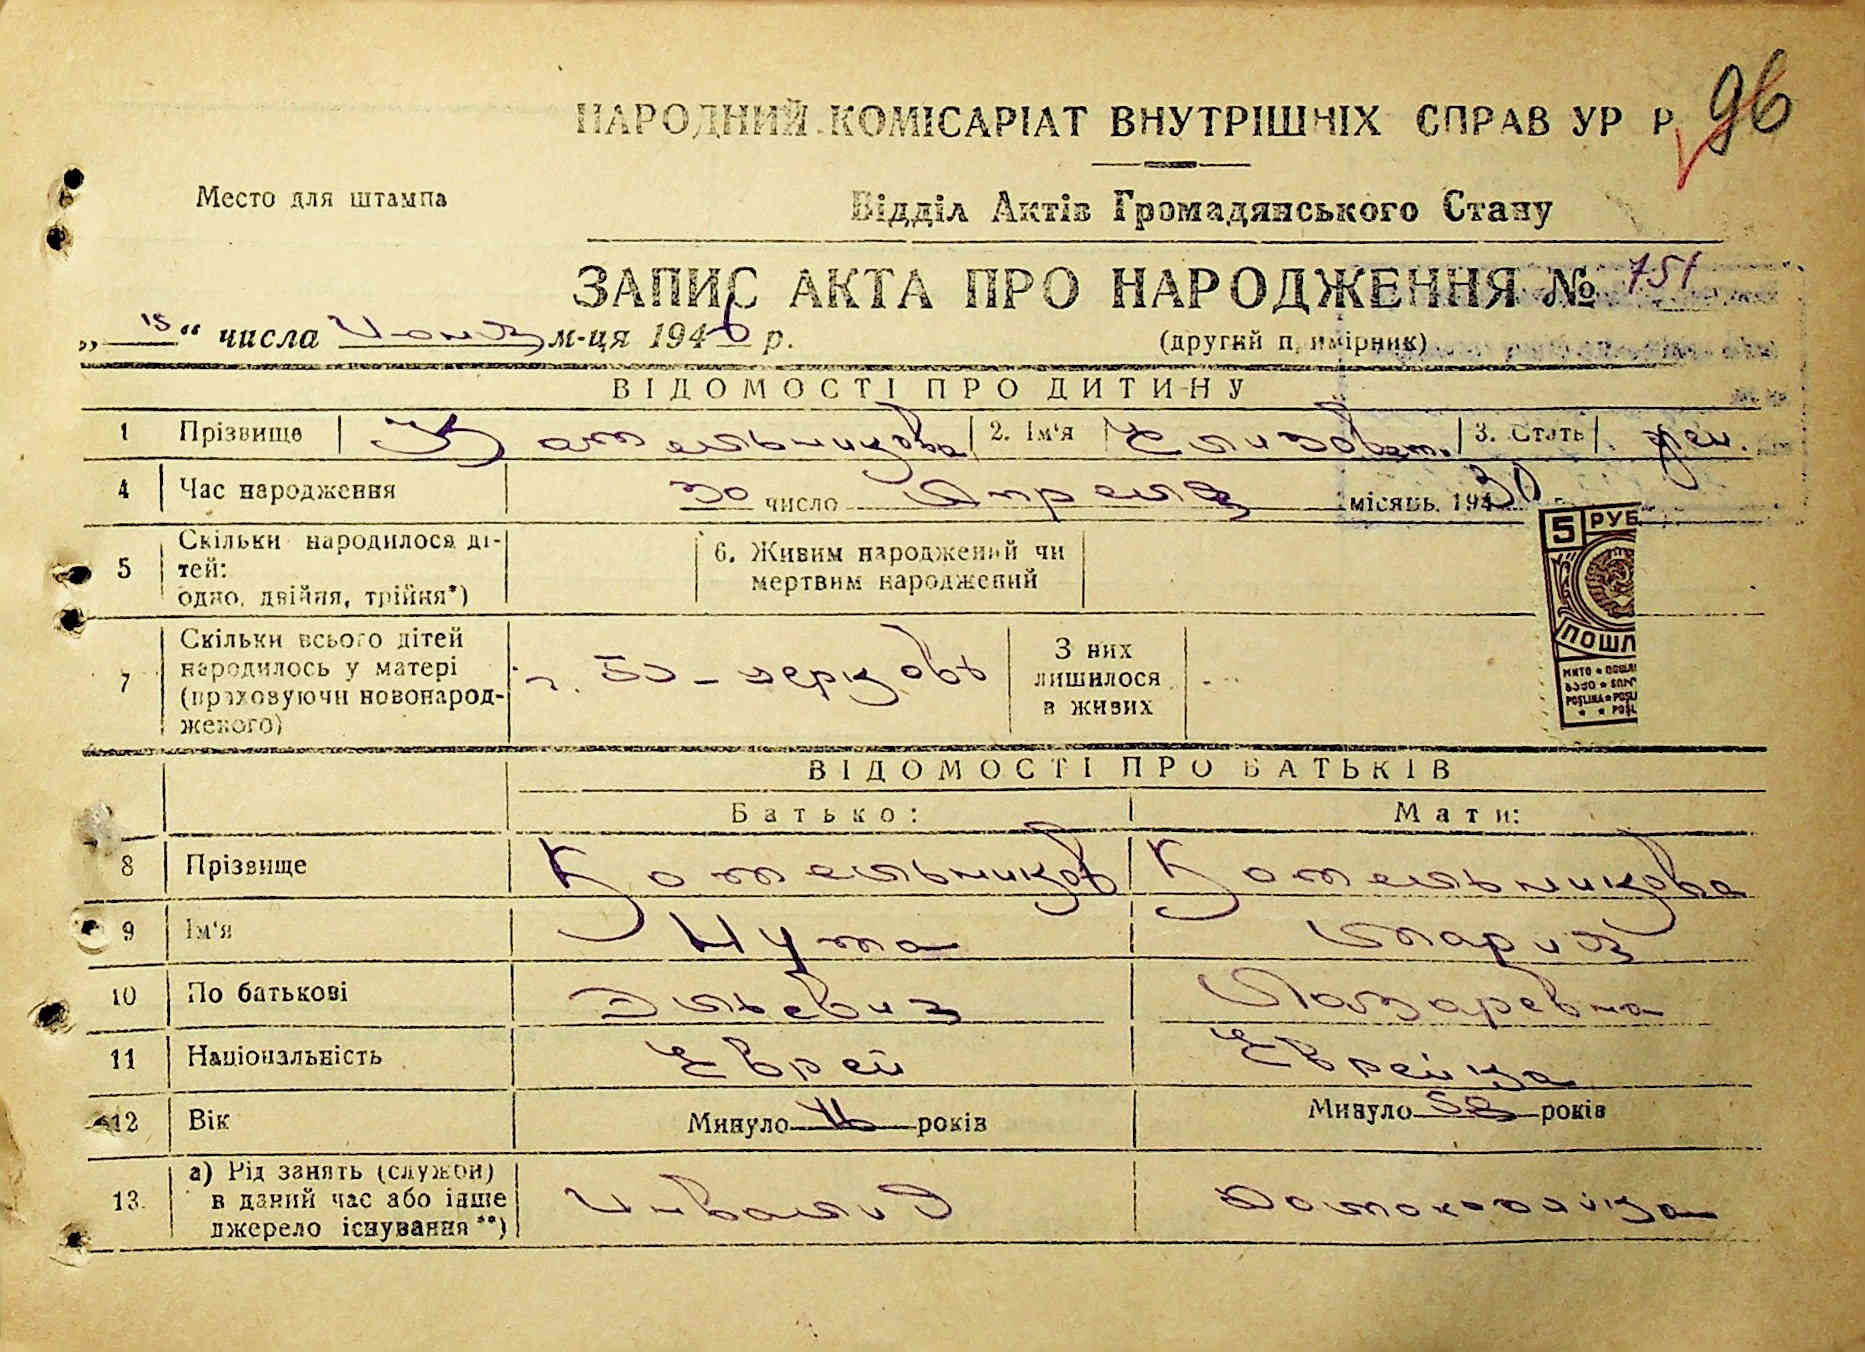 НАРОДНИЙ КОМІСАРІАТ ВНУТРІШНІХ СПРАВ УР Р
96
Место для штампа
Відділ Актів Громадянського Стану
ЗАПИС АКТА ПРО НАРОДЖЕННЯ № 751
„15“ числа Июня м-ця 1946 р.
(другий примірник)
ВІДОМОСТІ ПРО ДИТИНУ
1 Прізвище Котельникова 2. Ім'я Елизавет. 3. Стать жен.
4 Час народження 30 число Апреля місяць 1930
5 Скільки народилося ді-
тей:
одно, двійня, трійня*)
6. Живим народжений чи
мертвим народжений
7 Скільки всього дітей
народилось у матері
(враховуючи новонарод-
женого)
З них
лишилося
в живих
5 РУБ
ПОШЛ
ВІДОМОСТІ ПРО БАТЬКІВ
Батько: Мати:
8 Прізвище Котельников Котельникова
9 Ім'я Нута Мария
10 По батькові Эльевич Лазаревна
11 Національність Еврей Еврейка
12 Вік Минуло років Минуло років
13. а) Рід занять (служби)
в даний час або інше
джерело існування**)
Инвалид Домохозяйка